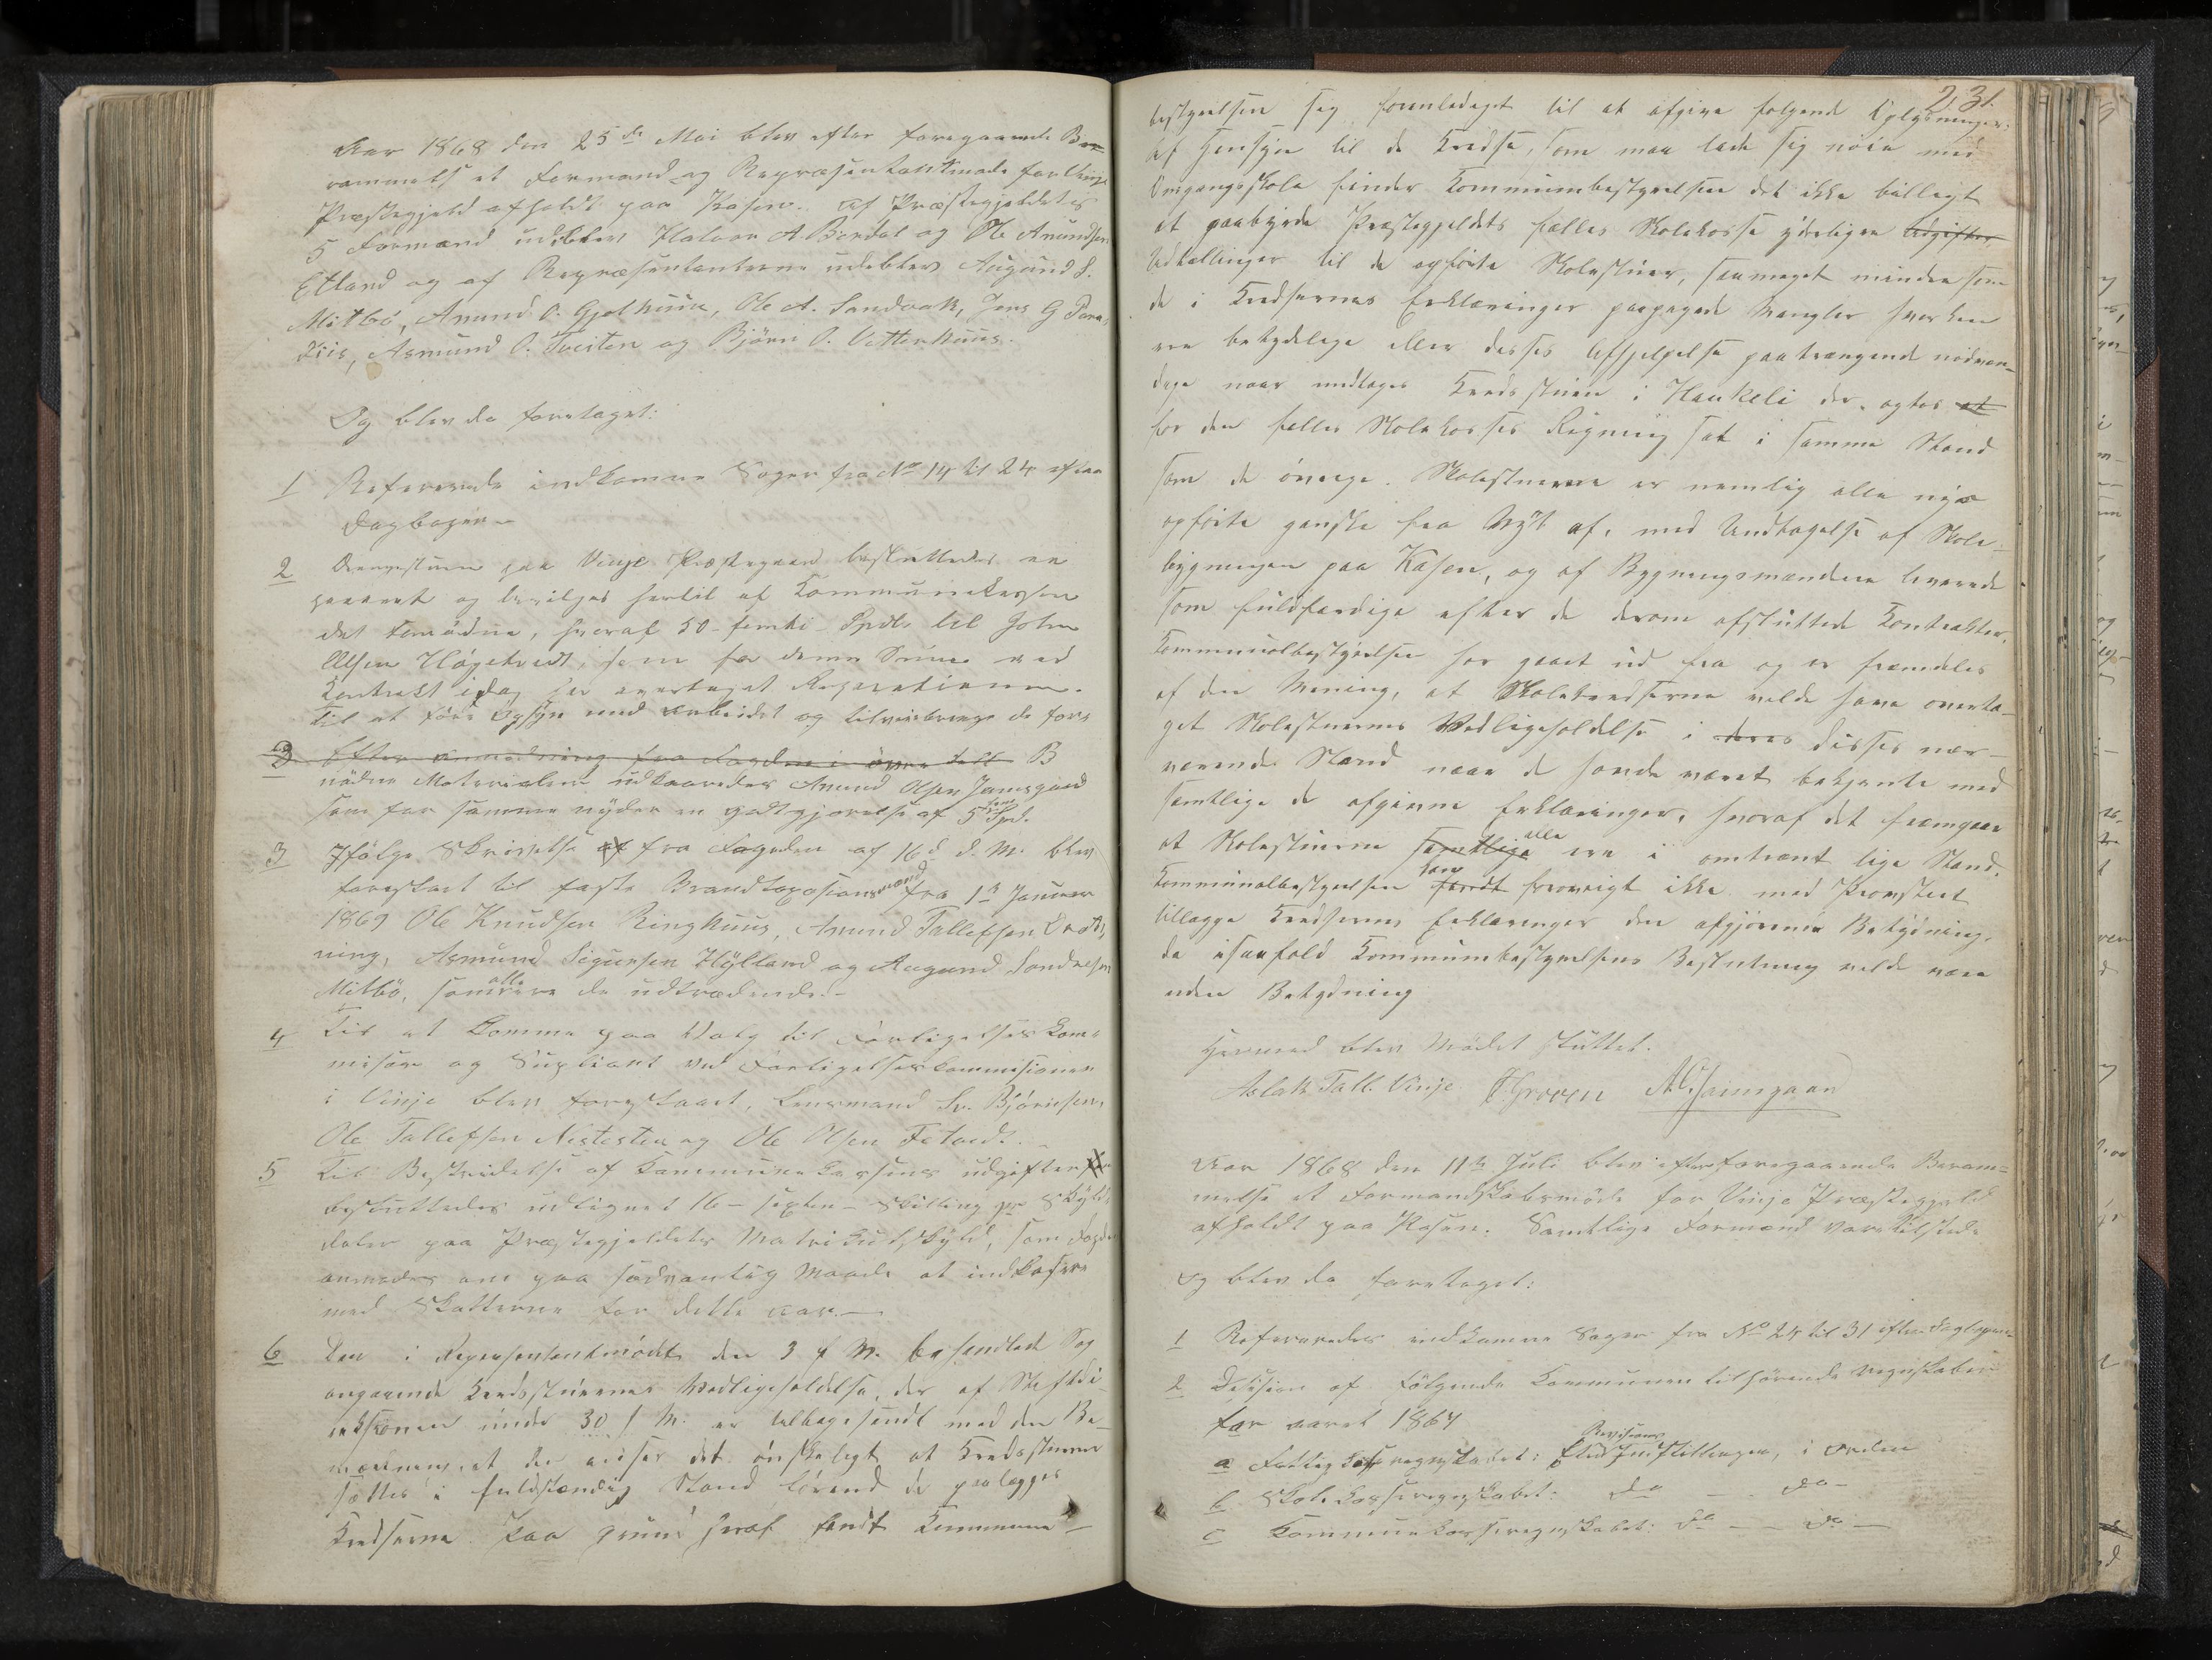 Aar 1868 den 25de Mai blev efter foregaaende Be-
rammels et Formand- og Repræsentantmøde for Vinje
Præstegjeld afholdt paa Kasen. Af Præstegjeldets
5 Formænd udeblev Halvor A. Berdal og Ole Amundsen
Edland og af Repræsentanterne udeblev Augund S.
Mitbö, Amund O. Gjelhuus, Ole A. Sandvak, Jens G
Asmund O. Tveiten og Björn O. Vetterhuus.
Og blev da foretaget:
1 Refererede indkomne Sager fra No 14 til 24 efter
Dagbogen
2 paa Vinje Præstegaard besluttedes
og bevilges hertil af Kommunekassen
det fornødne, hvoraf 50 - femti - Spdlr til John
Olsen Högetvedt, som for denne Summe ved
Kontrakt idag har overtaget Reparationen.
Til at före Opsyn med Arbeidet og tilveiebringe de for-
3 Efter Anmodning fra Fogden i övre B
nödne Materialier udkaaredes Amund Olsen Jamsgaard
som for samme nyder en godtgjørelse af 5 fem Spd.
3 Ifølge Skrivelse af fra Fogden af 16d d. M. blev
foreslaaet til faste Brandtaxationsmænd fra 1ste Januar
1869 Ole Knudsen Ringhuus, Amund Tallefsen
ning, Asmund Sigursen Hylland og Aagund Sondresen
Mitbö, som alle ere de udtrædende.-
4 Til at komme paa Valg til Forligelseskom-
misær og Supleant ved Forligelseskommisionen
i Vinje blev foreslaaet, Lensmand Sv. Björnsen,
Ole Tallefsen Nestesten og Ole Olsen
5 Til Bestridelse af Kommunekassens udgifter
besluttedes udlignet 16 - sexten - Skilling pr Skyld-
daler paa Præstegjeldets Matrikulskyld, som Fogden
anmodes om paa sædvanlig Maade at indkasere
med Skatterne for dette aar.-
6 Den i Repræsentantmödet den 3 f M. behandlede Sag
angaaende Kredsstuernes Vedligeholdelse, der af Stiftdi-
rektionen under 30 f M. er tilbagesendt med den Be-
mærkning, at den anser det önskeligt at Kredsstuerne
sættes i fuldstændig Stand förend de paalægges
Kredserne. Paa grund heraf fandt Kommune-
231.
bestyrelsen sig foranlediget til at afgive følgende Oplysninger:
Af Hensyn til de Kredse, som maa lade sig nöie med
Omgangsskole finder Kommunbestyrelsen det ikke billigt
at paabyrde Præstegjeldets fælles Skolekasse yderligere Udgifter
Udtællinger til de opførte Skolestuer, saameget mindre som
de i Kredsernes Erklæringer paapegede Mangler hverken
ere betydelige eller disses Afhjelpelse paatrængende nödven-
dige naar undtages Kredsstuen i Haukeli der agtes at
for den fælles Skolekasses Regning sat i samme Stand
som de övrige. Skolestuerne er nemlig alle nye
opførte ganske fra Nyt af, med Undtagelse af Skole-
bygningen paa Kasen, og af Bygningsmændene leverede
som fuldfærdige efter de derom afsluttede Kontrakter.
Kommunalbestyrelsen har gaaet ud fra og er fremdeles
af den Mening, at Skolekredserne vilde have overta-
get Skolestuernes Vedligeholdelse i deres disses nær-
værende Stand naar de havde været bekjente med
samtlige de afgivne Erklæringer, hvoraf det fremgaar
at Skolestuerne samtlige alle ere i omtrent lige Stand.
Kommunalbestyrelsen fandt kan forøvrigt ikke med Provsten
tillægge Kredsernes Erklæringer den afgjörende Betydning,
da isaafald Kommunbestyrelsens Beslutning vilde være
uden Betydning
Hermed blev Mödet sluttet.
Aslak Tall. Vinje Groven A.O. Jamsgaar
Aar 1868 den 11te Juli blev efter foregaaende Beram-
melse et Formandskabsmöde for Vinje Præstegjeld
afholdt paa Kasen. Samtlige Formænd var tilstede
Og blev da foretaget:
1 Refereredes indkomne Sager fra No 24 til 31 efter Dagbogen
2 Desision af følgende Kommunen tilhørende regnskaber
for aaret 1867
a Fattigkasseregnskabet: Efter Revisions Indstillingen, i Orden
b Skolekasseregnskabet: do - do -
c Kommunekasseregnskabet: do - do -